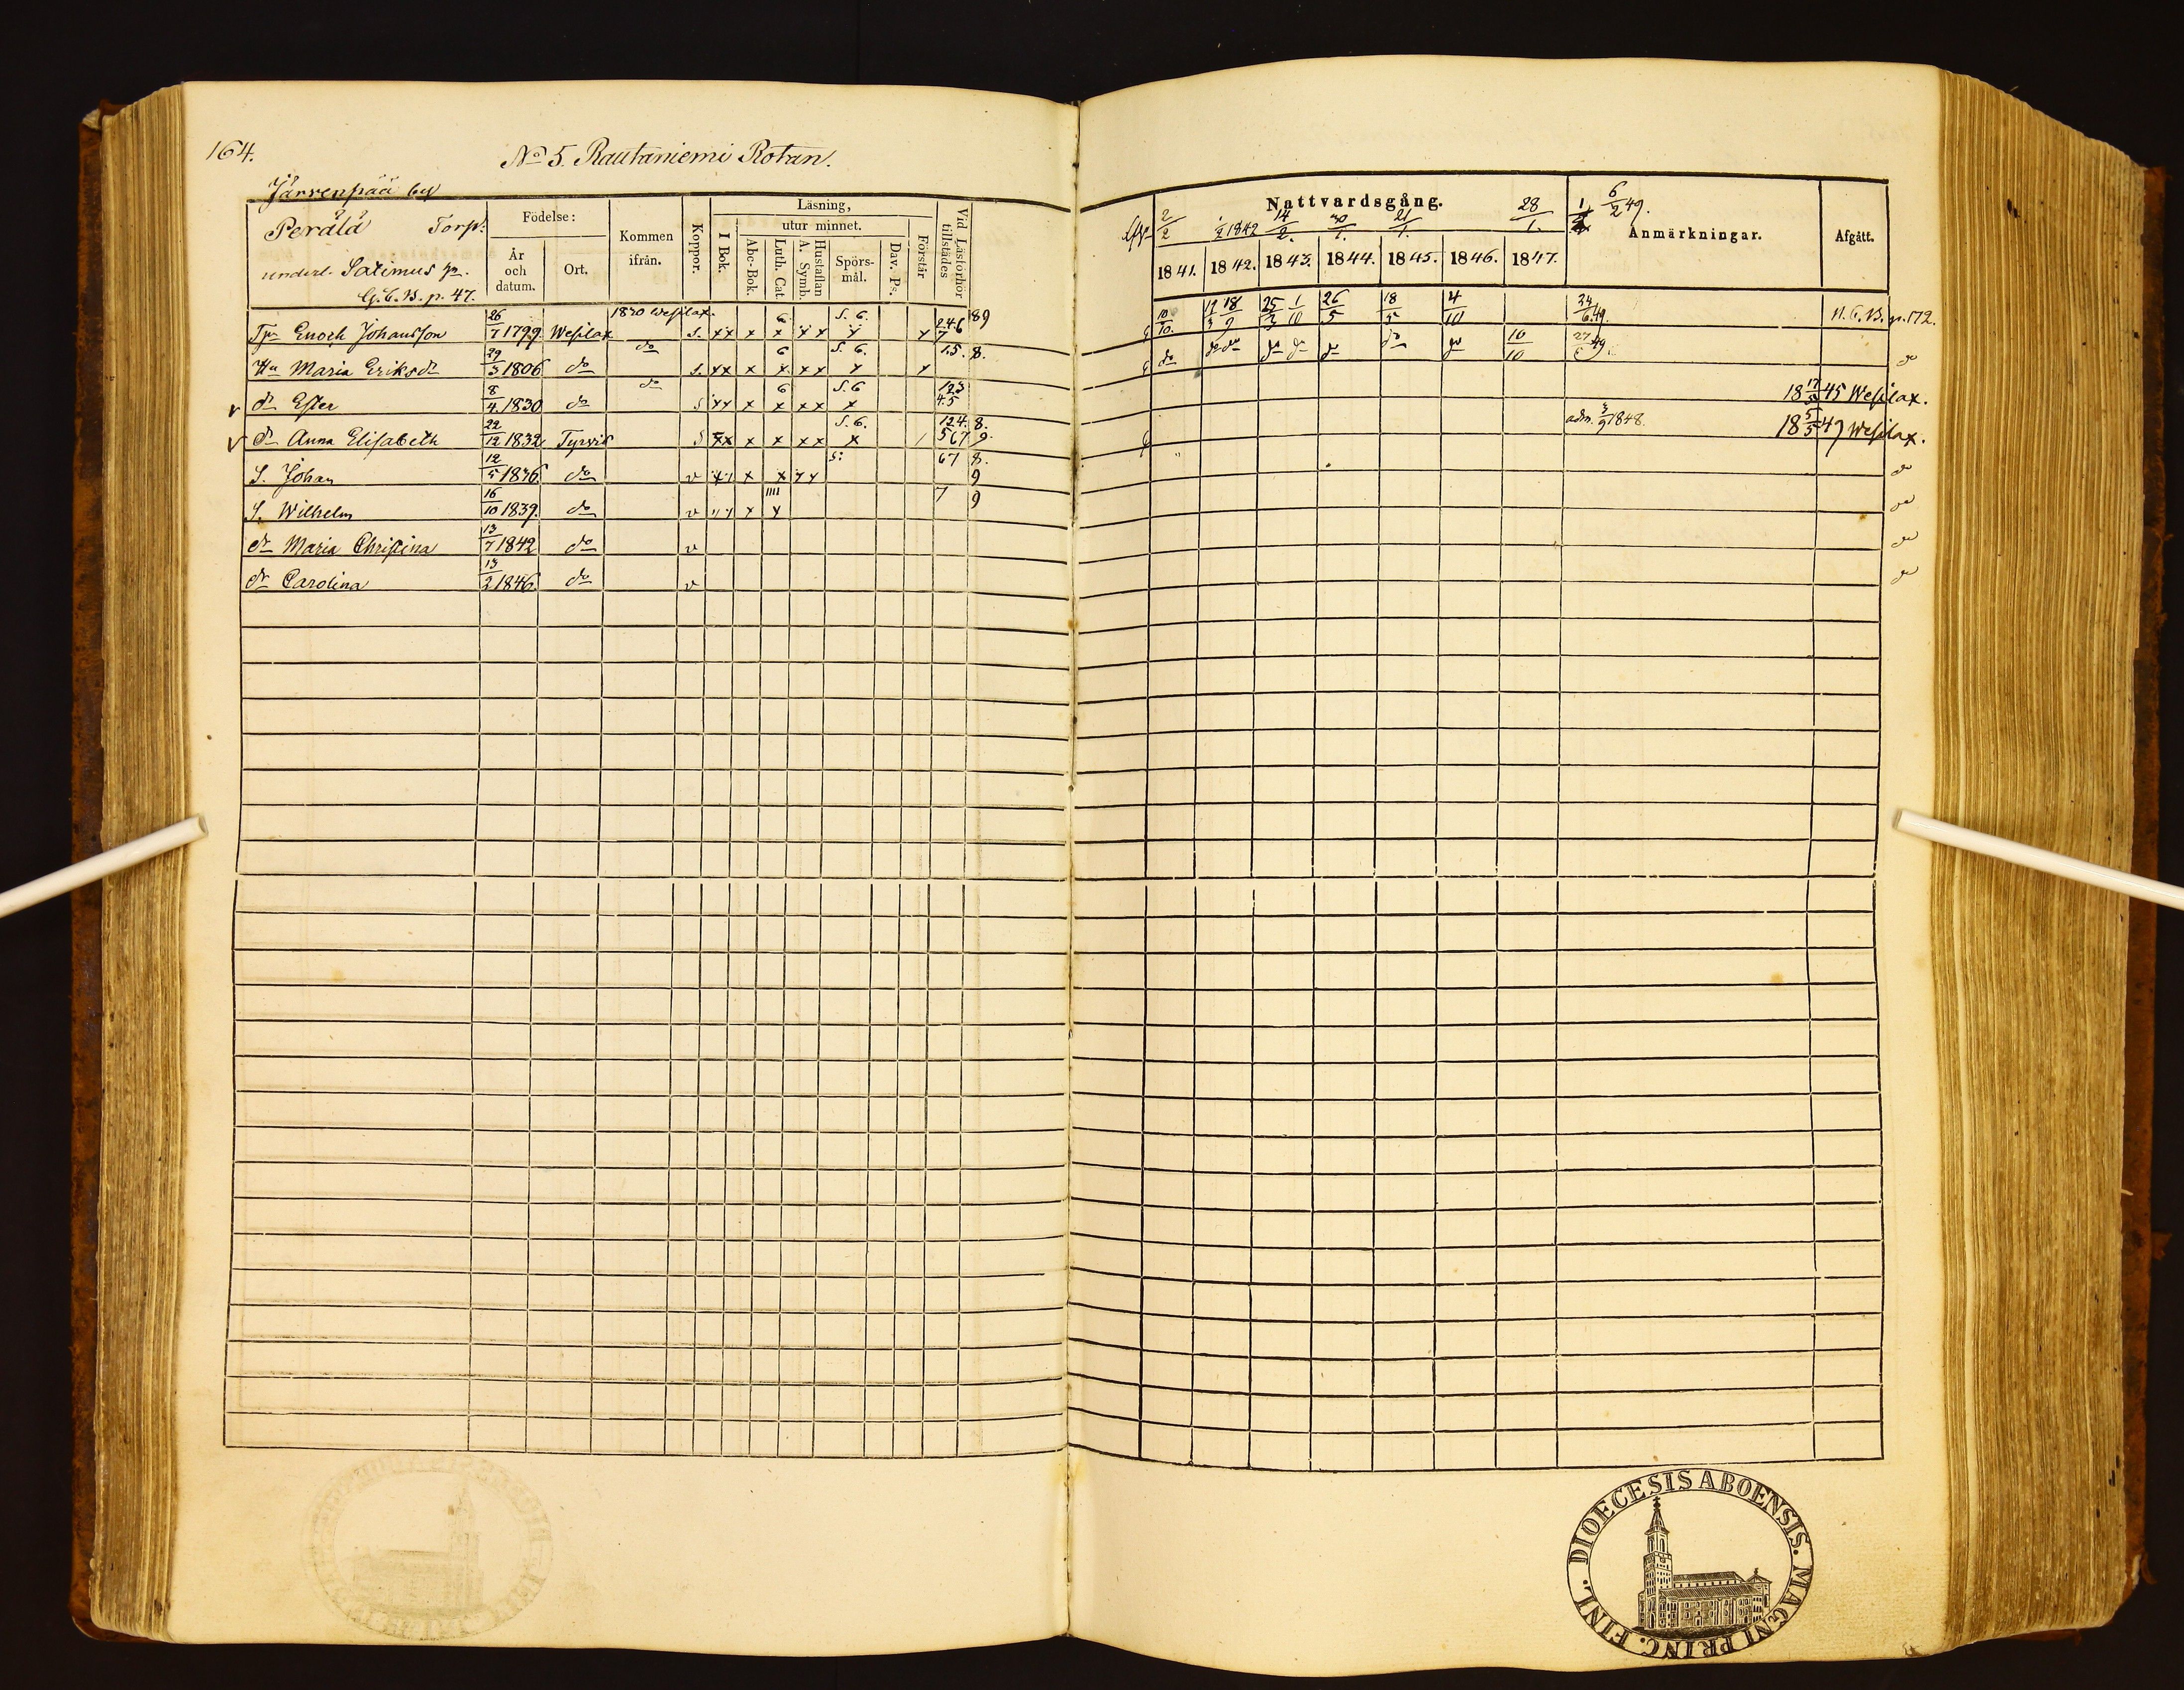 164.
No 5. Rautaniemi Rotan.
Järvenpää by
Perälä Torp.
underl. Salimus
G.C.B. p. 47.
Födelse:
År och datum.
Ort.
Kommen ifrån.
Koppor.
Läsning,
I Bok.
utur minnet.
Abc-Bok.
Luth. Cat.
A. Symb. Hustaflan
Spörs-mål.
Dav. Ps.
Förstår
Vid Läsförhör tillstädes
Enoch Johansson 26/7 1799. Wesilax 1820 Wesilax. S. xx x x x x x x 6 S. 6. 2.4.6 7 89
Hu Maria Eriksdr 29/3 1806 do do S. xx x x xx x x 6 S. 6. 1.5. 8.
dr Ester 8/4 1830 do do S xx x x xx x 6 S. 6 123 4.5
dr Anna Elisabeth 22/12 1832 Tyrvis S xx x x xx x S. 6. 124. 567 8. 9.
S. Johan 12/5 1836 do v x x x x S: 67 8. 9
S. Wilhelm 16/10 1839. do v x x 7 9
dr Maria Christina 13/7 1842 do v
dr Carolina 13/2 1846. do v
Nattvardsgång.
2/2 1/2 1842 14/2. 30/1. 21/1. 28/1. 6/2 49.
1841. 1842. 1843. 1844. 1845. 1846. 1847.
Anmärkningar.
Afgått.
10/10. 18/9 25/3 1/10 26/5 18/5 4/10 24/6 49. N.C.B. p. 172.
do do do do do do do do 10/10 49. do
18 17/5 45 Wesilax.
adm. 3/9 1848. 18 5/5 49 Wesilax.
do
do
do
do
DIOECESIS ABOENSIS. MAGNI PRINC. FINL.